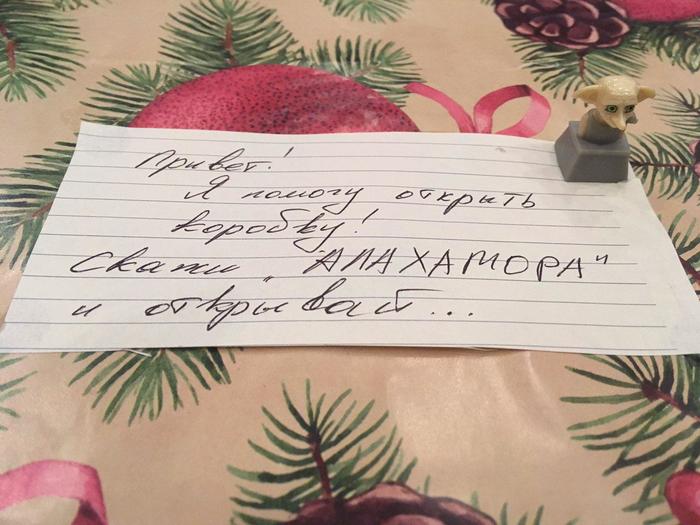 Привет!
Я помогу открыть
коробку!
Скажи „АЛАХАМОРА"
и открывай...